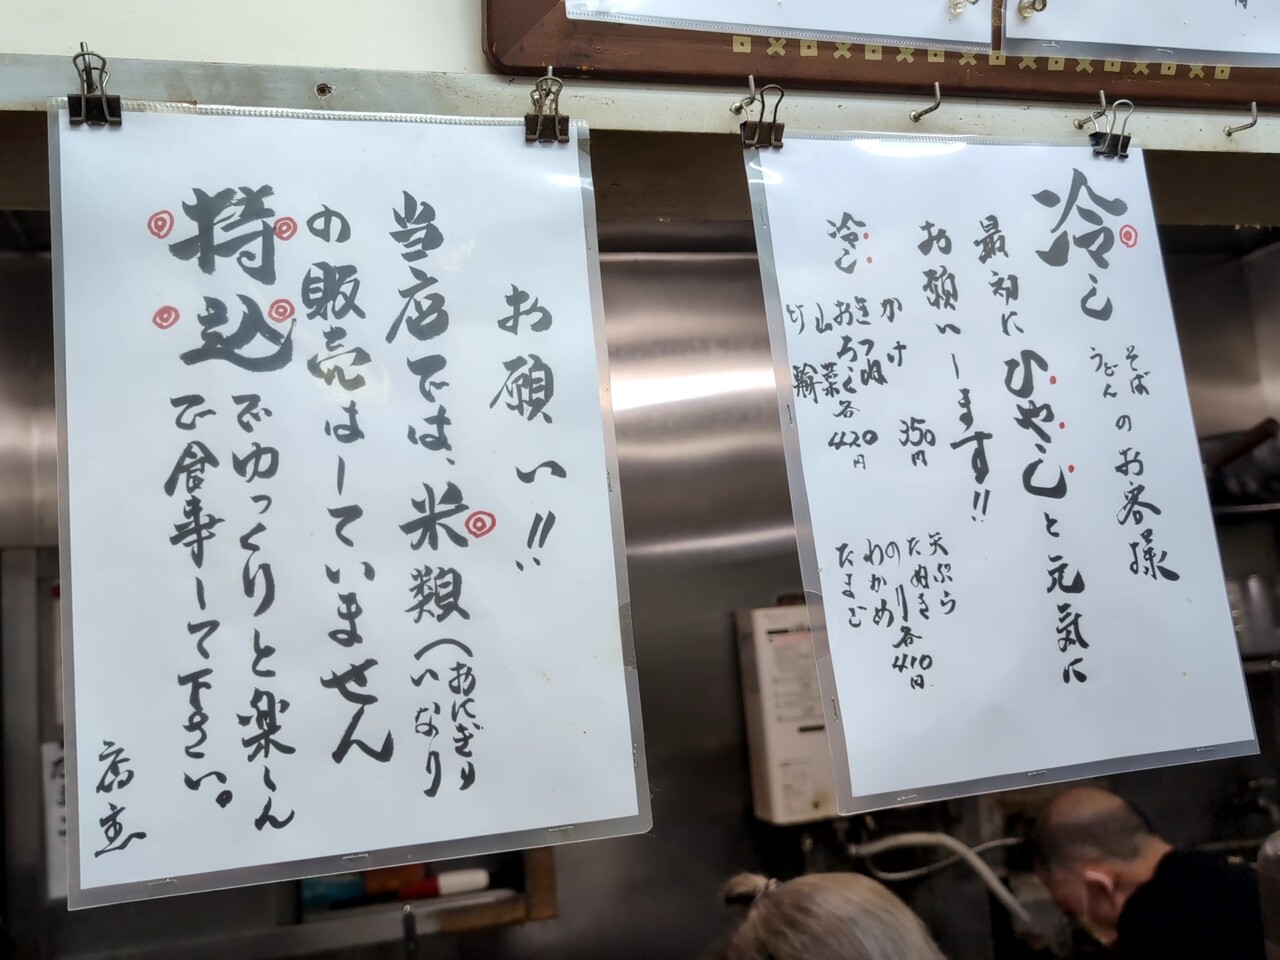 お願い!!
当店では、米類(おにぎり
いなり
の販売はしていません
持込でゆっくりと楽しん
で食事して下さい。
店主
冷しそば
うどんのお客様
最初にひやしと元気に
お願いします!!
冷し
かけ 350円
きつね
おろし
山菜
竹輪
各420円
天ぷら
たぬき
のり
わかめ
たまご
各410円